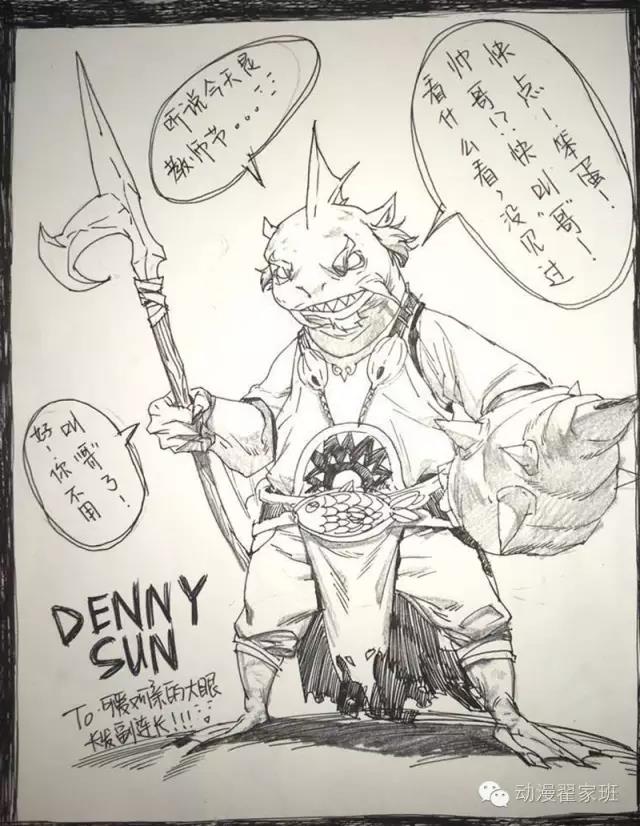 听说今天是
教师节。。。
看什么看,没见过
帅哥!?快叫"哥"!
快点!笨蛋!
好!
你不用
叫"哥"了!
DENNY
SUN
To.可爱可亲的大眼
长发副连长!!!
动漫翟家班